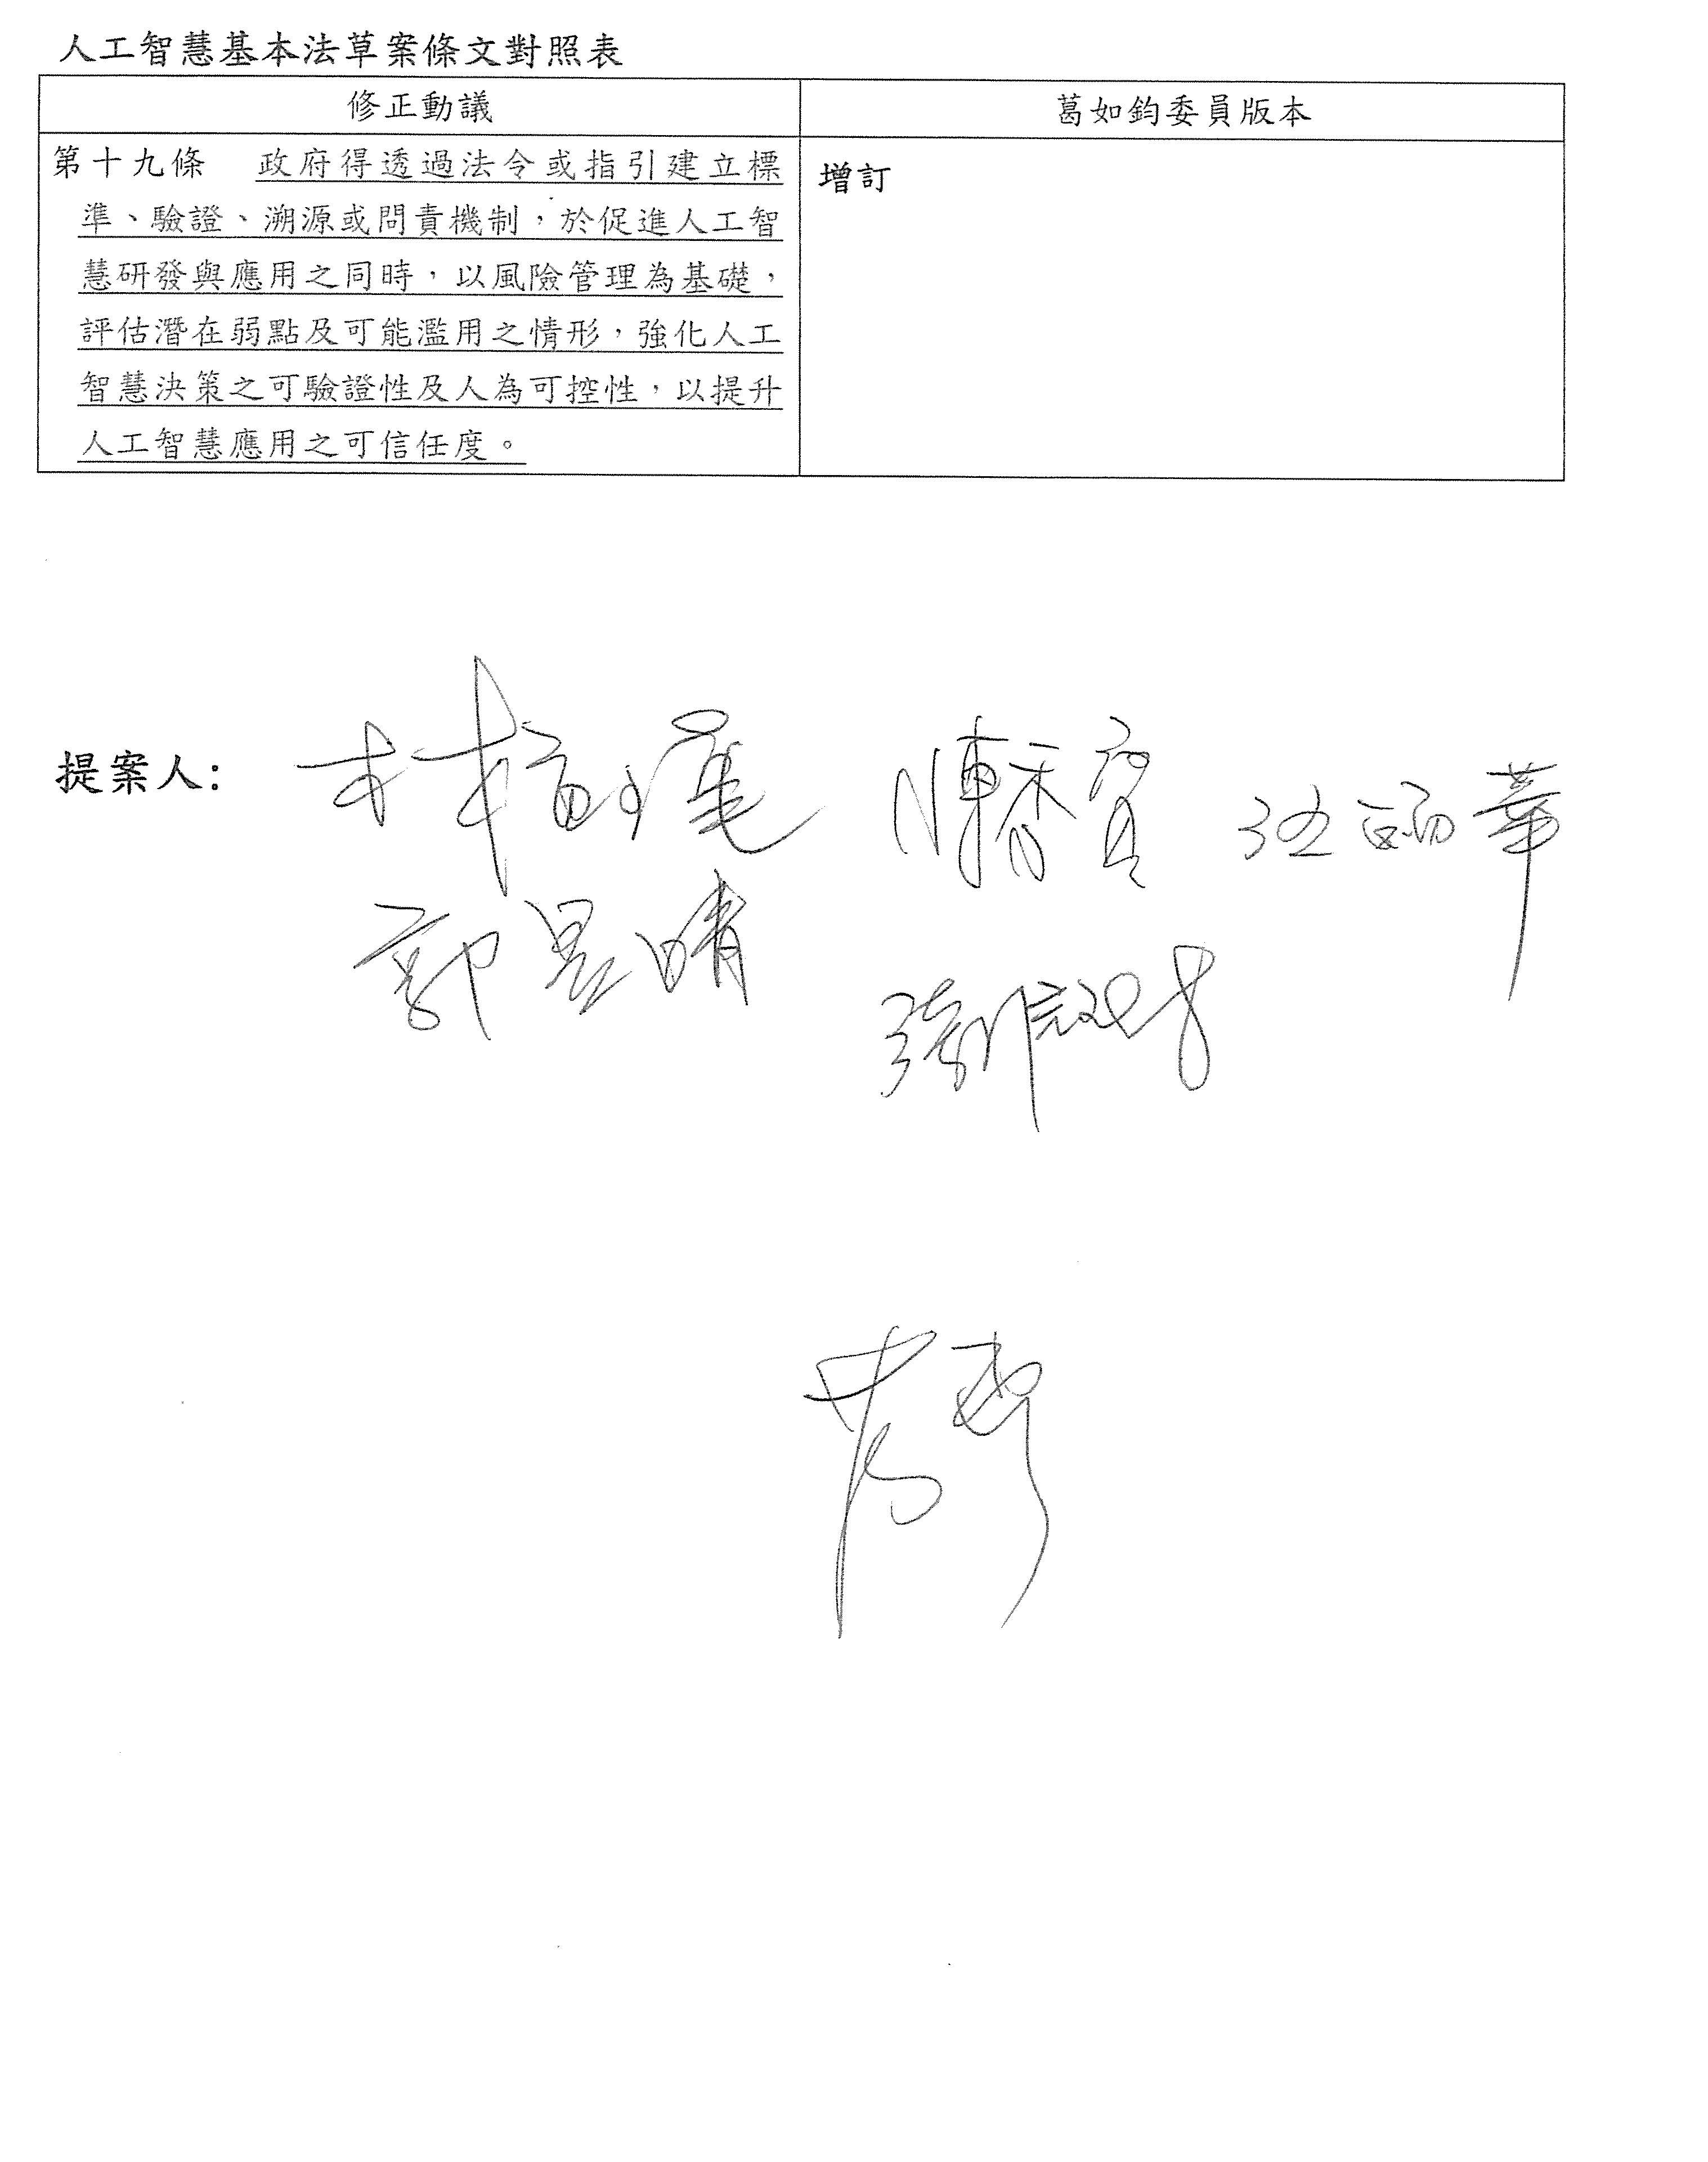 人工智慧基本法草案條文對照表
修正動議
葛如鈞委員版本
第十九條 政府得透過法令或指引建立標
準、驗證、溯源或問責機制,於促進人工智
慧研發與應用之同時,以風險管理為基礎,
評估潛在弱點及可能濫用之情形,強化人工
智慧決策之可驗證性及人為可控性,以提升
人工智慧應用之可信任度。
增訂
提案人:
郭昱晴